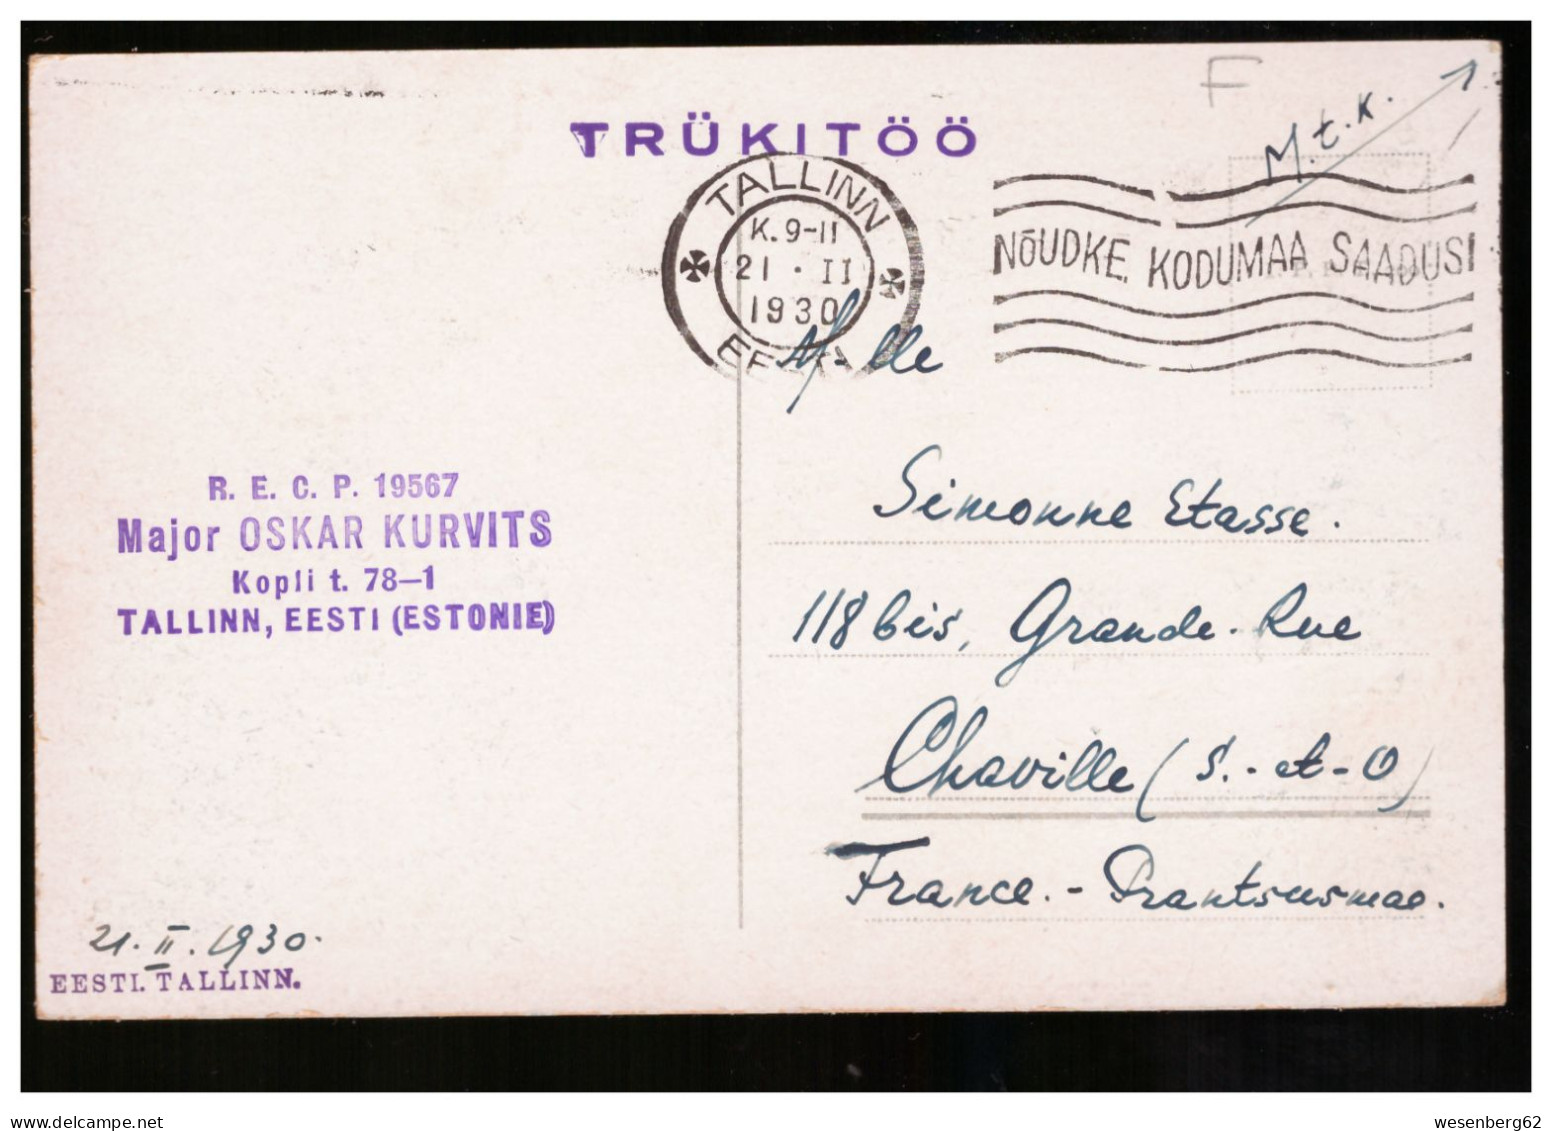 F
M.t.k.
TRÜKITÖÖ
TALLINN
K. 9-11
21 · II
1930
NÕUDKE KODUMAA SAADUSI
M-lle
Simonne Etasse.
118 bis, Grande-Rue
Chaville (S.-et-O)
France. - Prantsusmaa.
R. E. C. P. 19567
Major OSKAR KURVITS
Kopli t. 78—1
TALLINN, EESTI (ESTONIE)
21. II. 1930.
EESTI. TALLINN.
wesenberg62